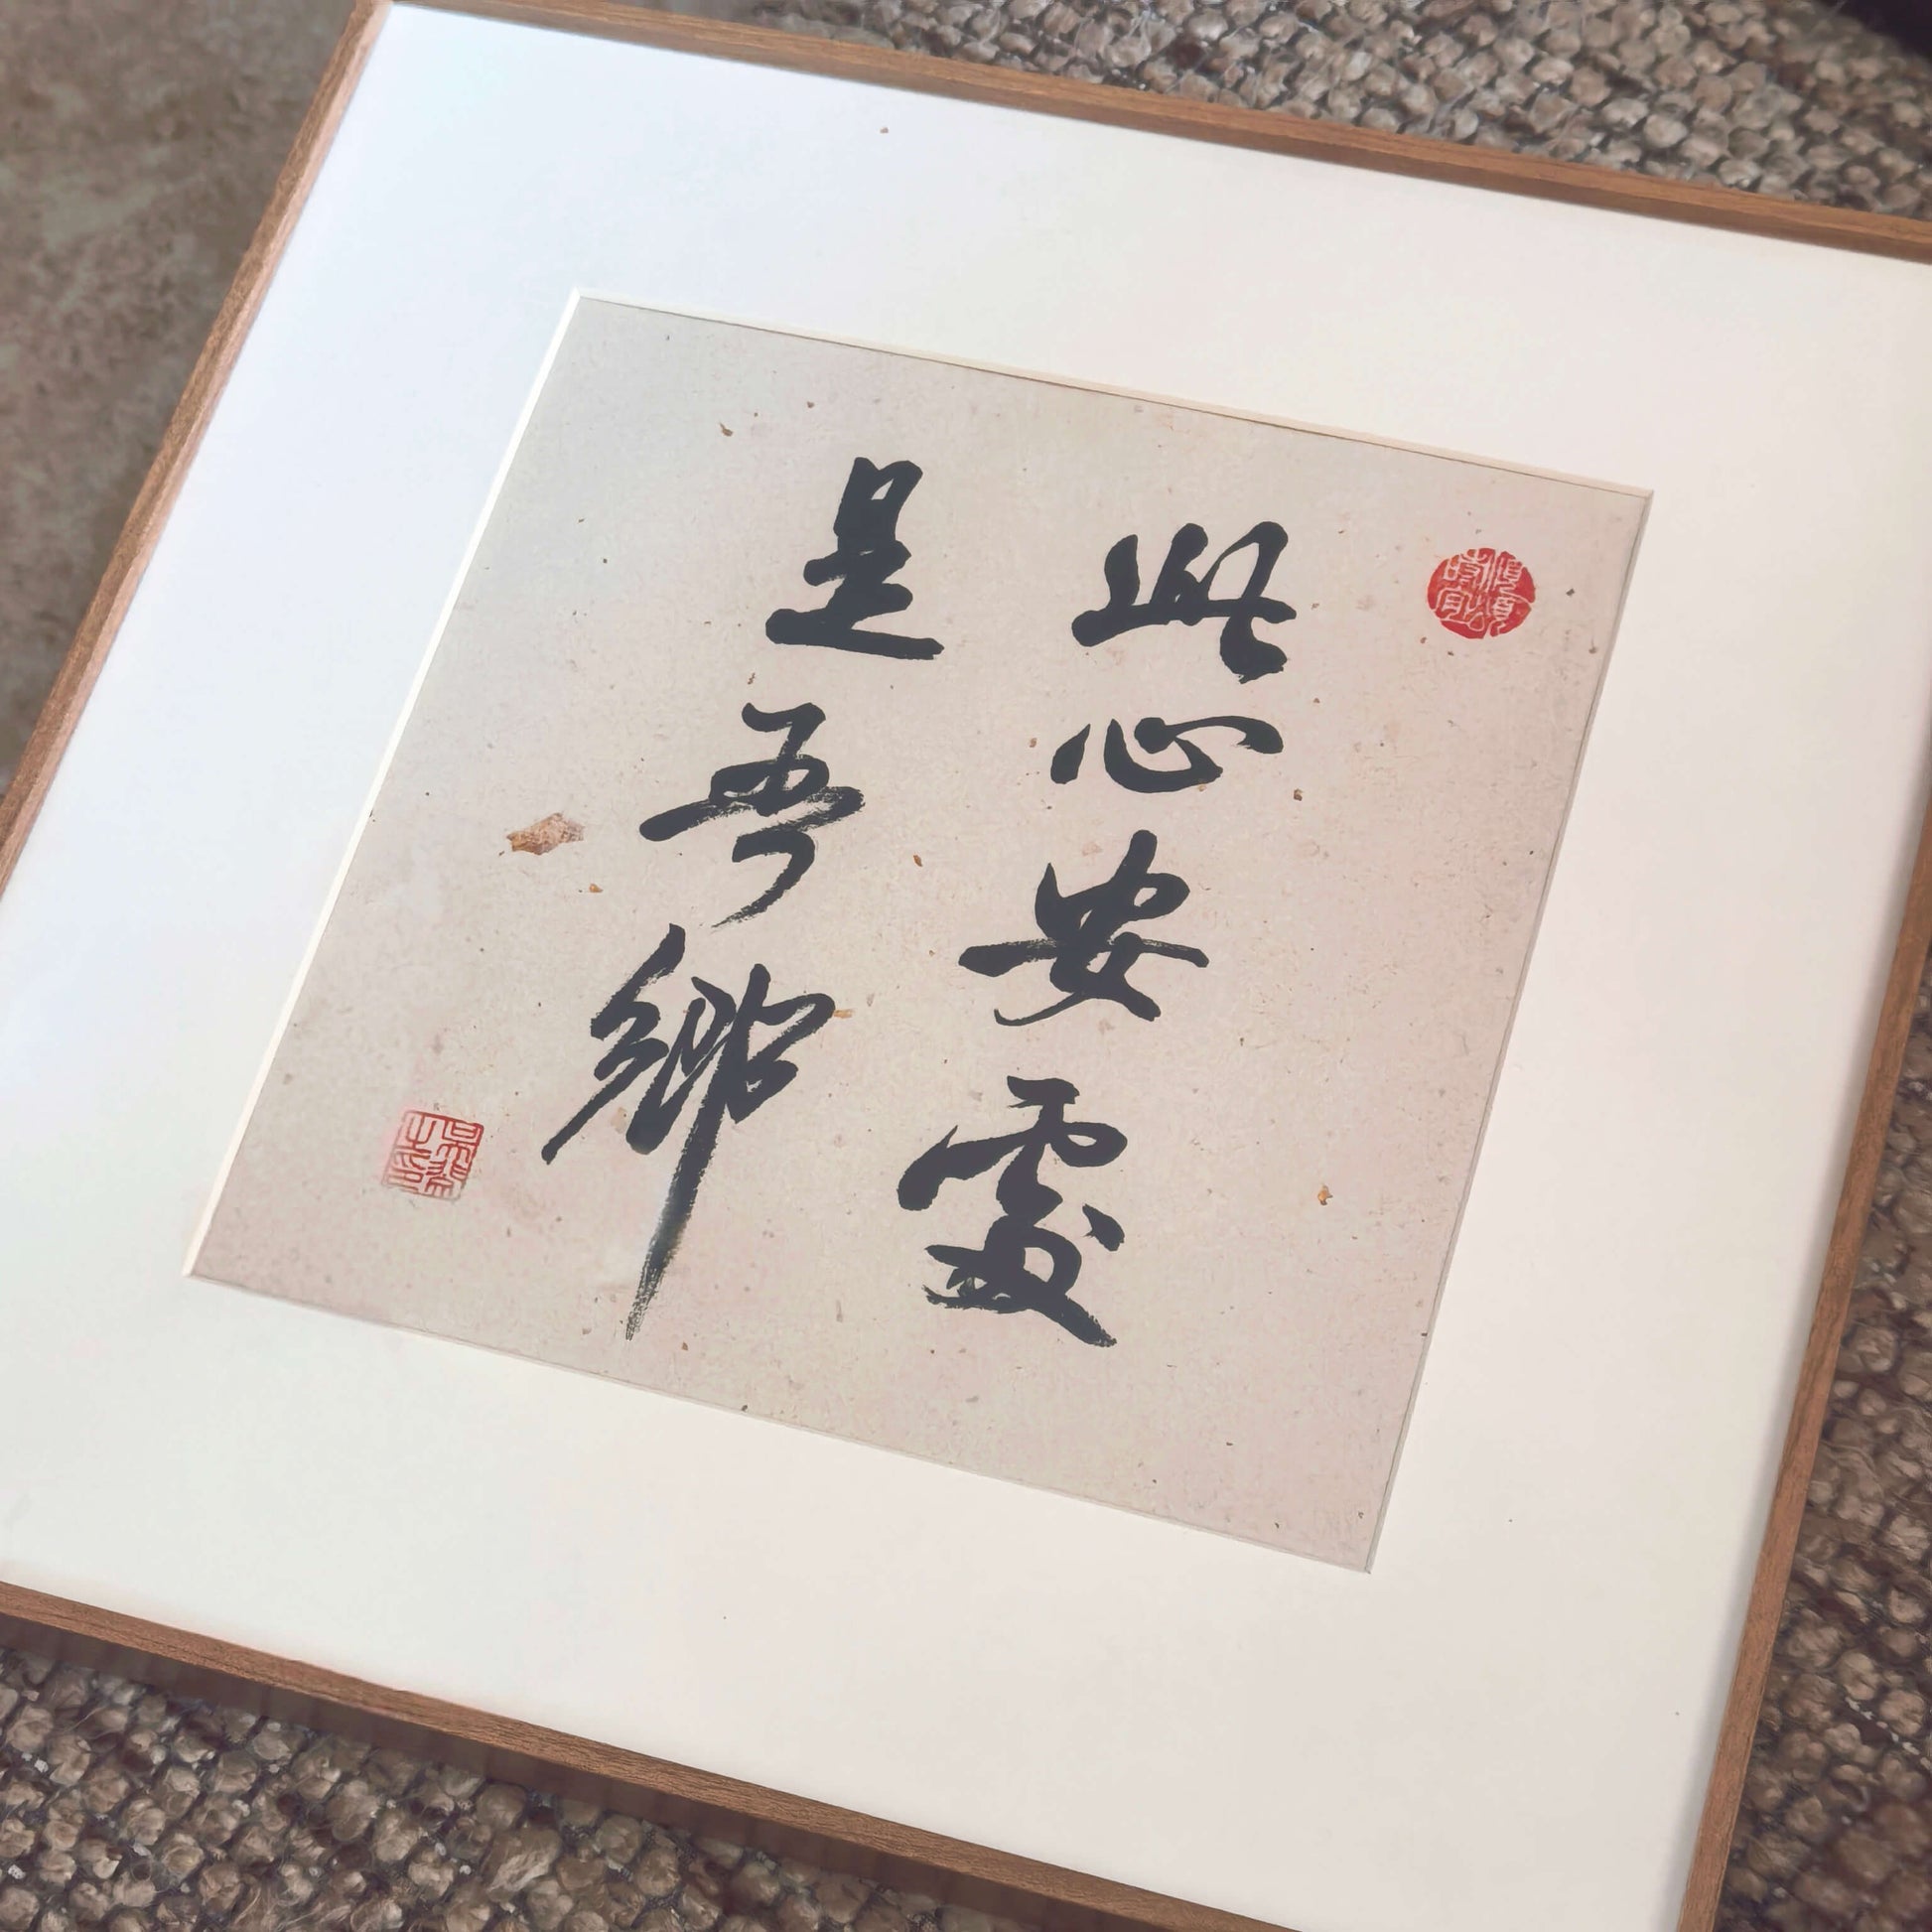 此心安處
是吾鄉